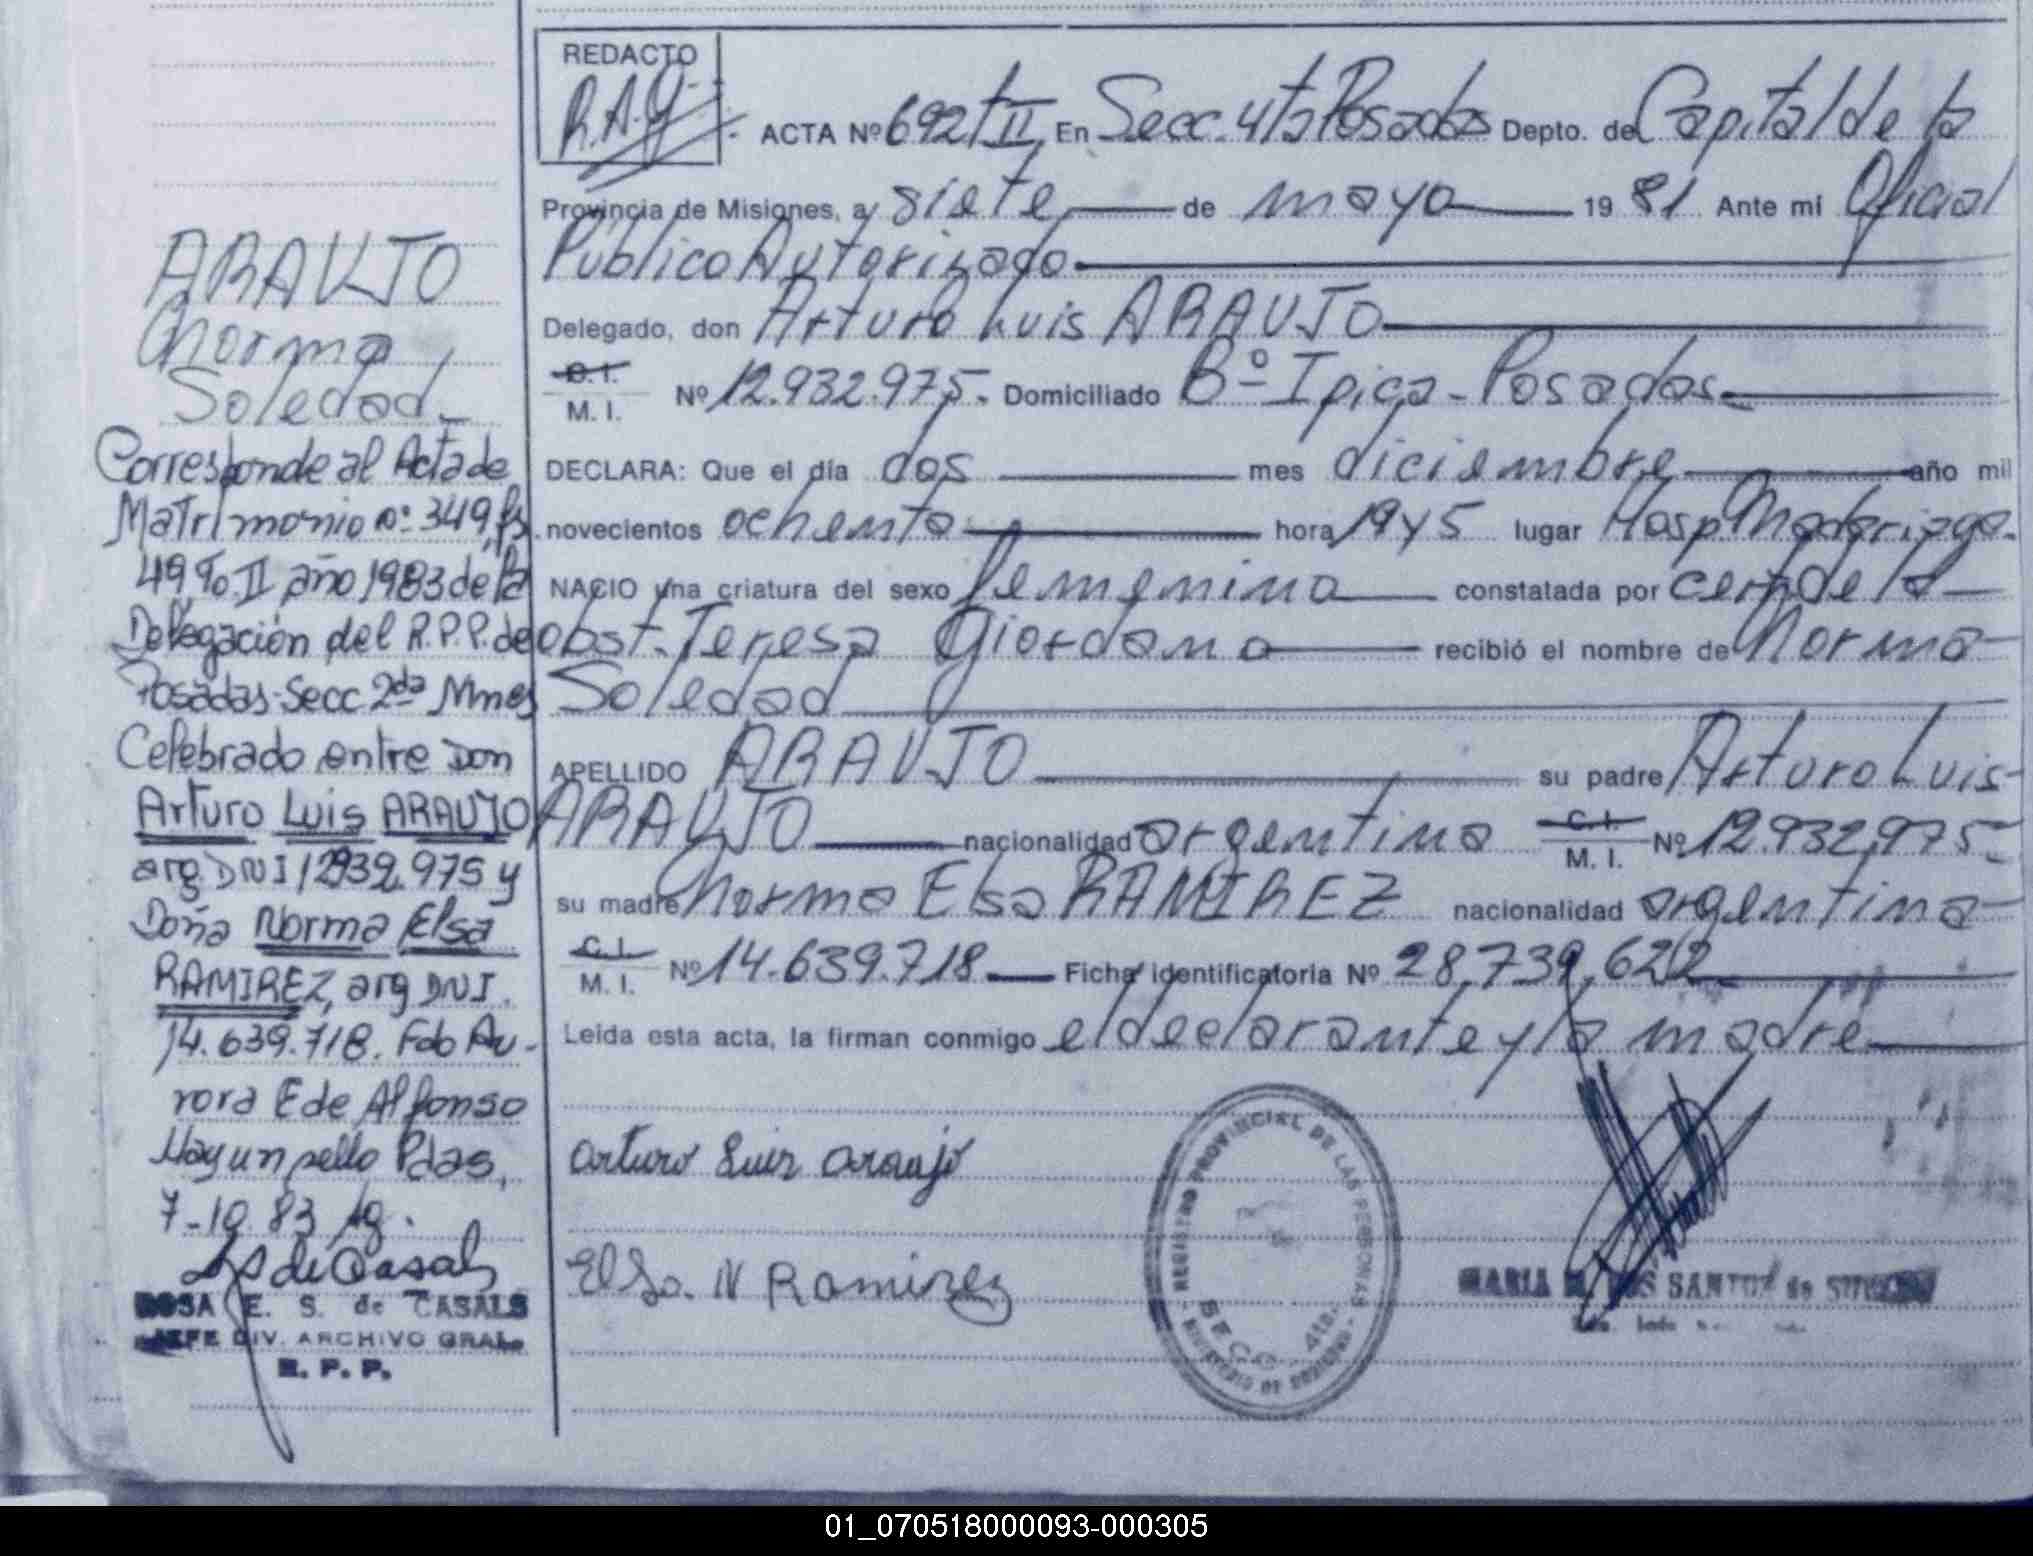 ARAUJO
Norma
Soledad
Corresponde al Acta de
Matrimonio nº 349, fs.
49, Tº II año 1983 de la
Delegación del R.P.P. de
Posadas-Secc 2da Mnes
Celebrado entre Don
Arturo Luis ARAUJO
arg DNI 12932.975 y
Doña Norma Elsa
RAMIREZ, arg DNI.
14.639.718. Fdo Au-
rora E de Alfonso
Hay un sello Pdas,
7-10.83
de Casals
ROSA E. S. de CASALS
JEFE DIV. ARCHIVO GRAL.
R. P. P.
REDACTO
R.A.G.
ACTA Nº 692 tII En Secc. 4ta Posadas Depto. de Capital de la
Provincia de Misiones, a siete de mayo 19 81 Ante mi Oficial
Público Autorizado
Delegado, don Arturo Luis ARAUJO
C. I.
M. I. Nº 12.932.975. Domiciliado Bº Ipica - Posadas.
DECLARA: Que el día dos mes diciembre año mil
novecientos ochenta hora 19 y 5 lugar Hosp Madariaga.
NACIO una criatura del sexo femenino constatada por cert de la
obst. Teresa Giordano recibió el nombre de Norma
Soledad
APELLIDO ARAUJO su padre Arturo Luis
ARAUJO nacionalidad argentina C. I.
M. I. Nº 12.932.975
su madre Norma Elsa RAMIREZ nacionalidad argentina
C. I.
M. I. Nº 14.639.718 Ficha identificatoria Nº 28.739.622
Leida esta acta, la firman conmigo el declarante y la madre
Arturo Luis Araujo
Elsa. N Ramirez
REGISTRO PROVINCIAL DE LAS PERSONAS
SECC. 4ta.
MARIA DOS SANTOS de
01_070518000093-000305